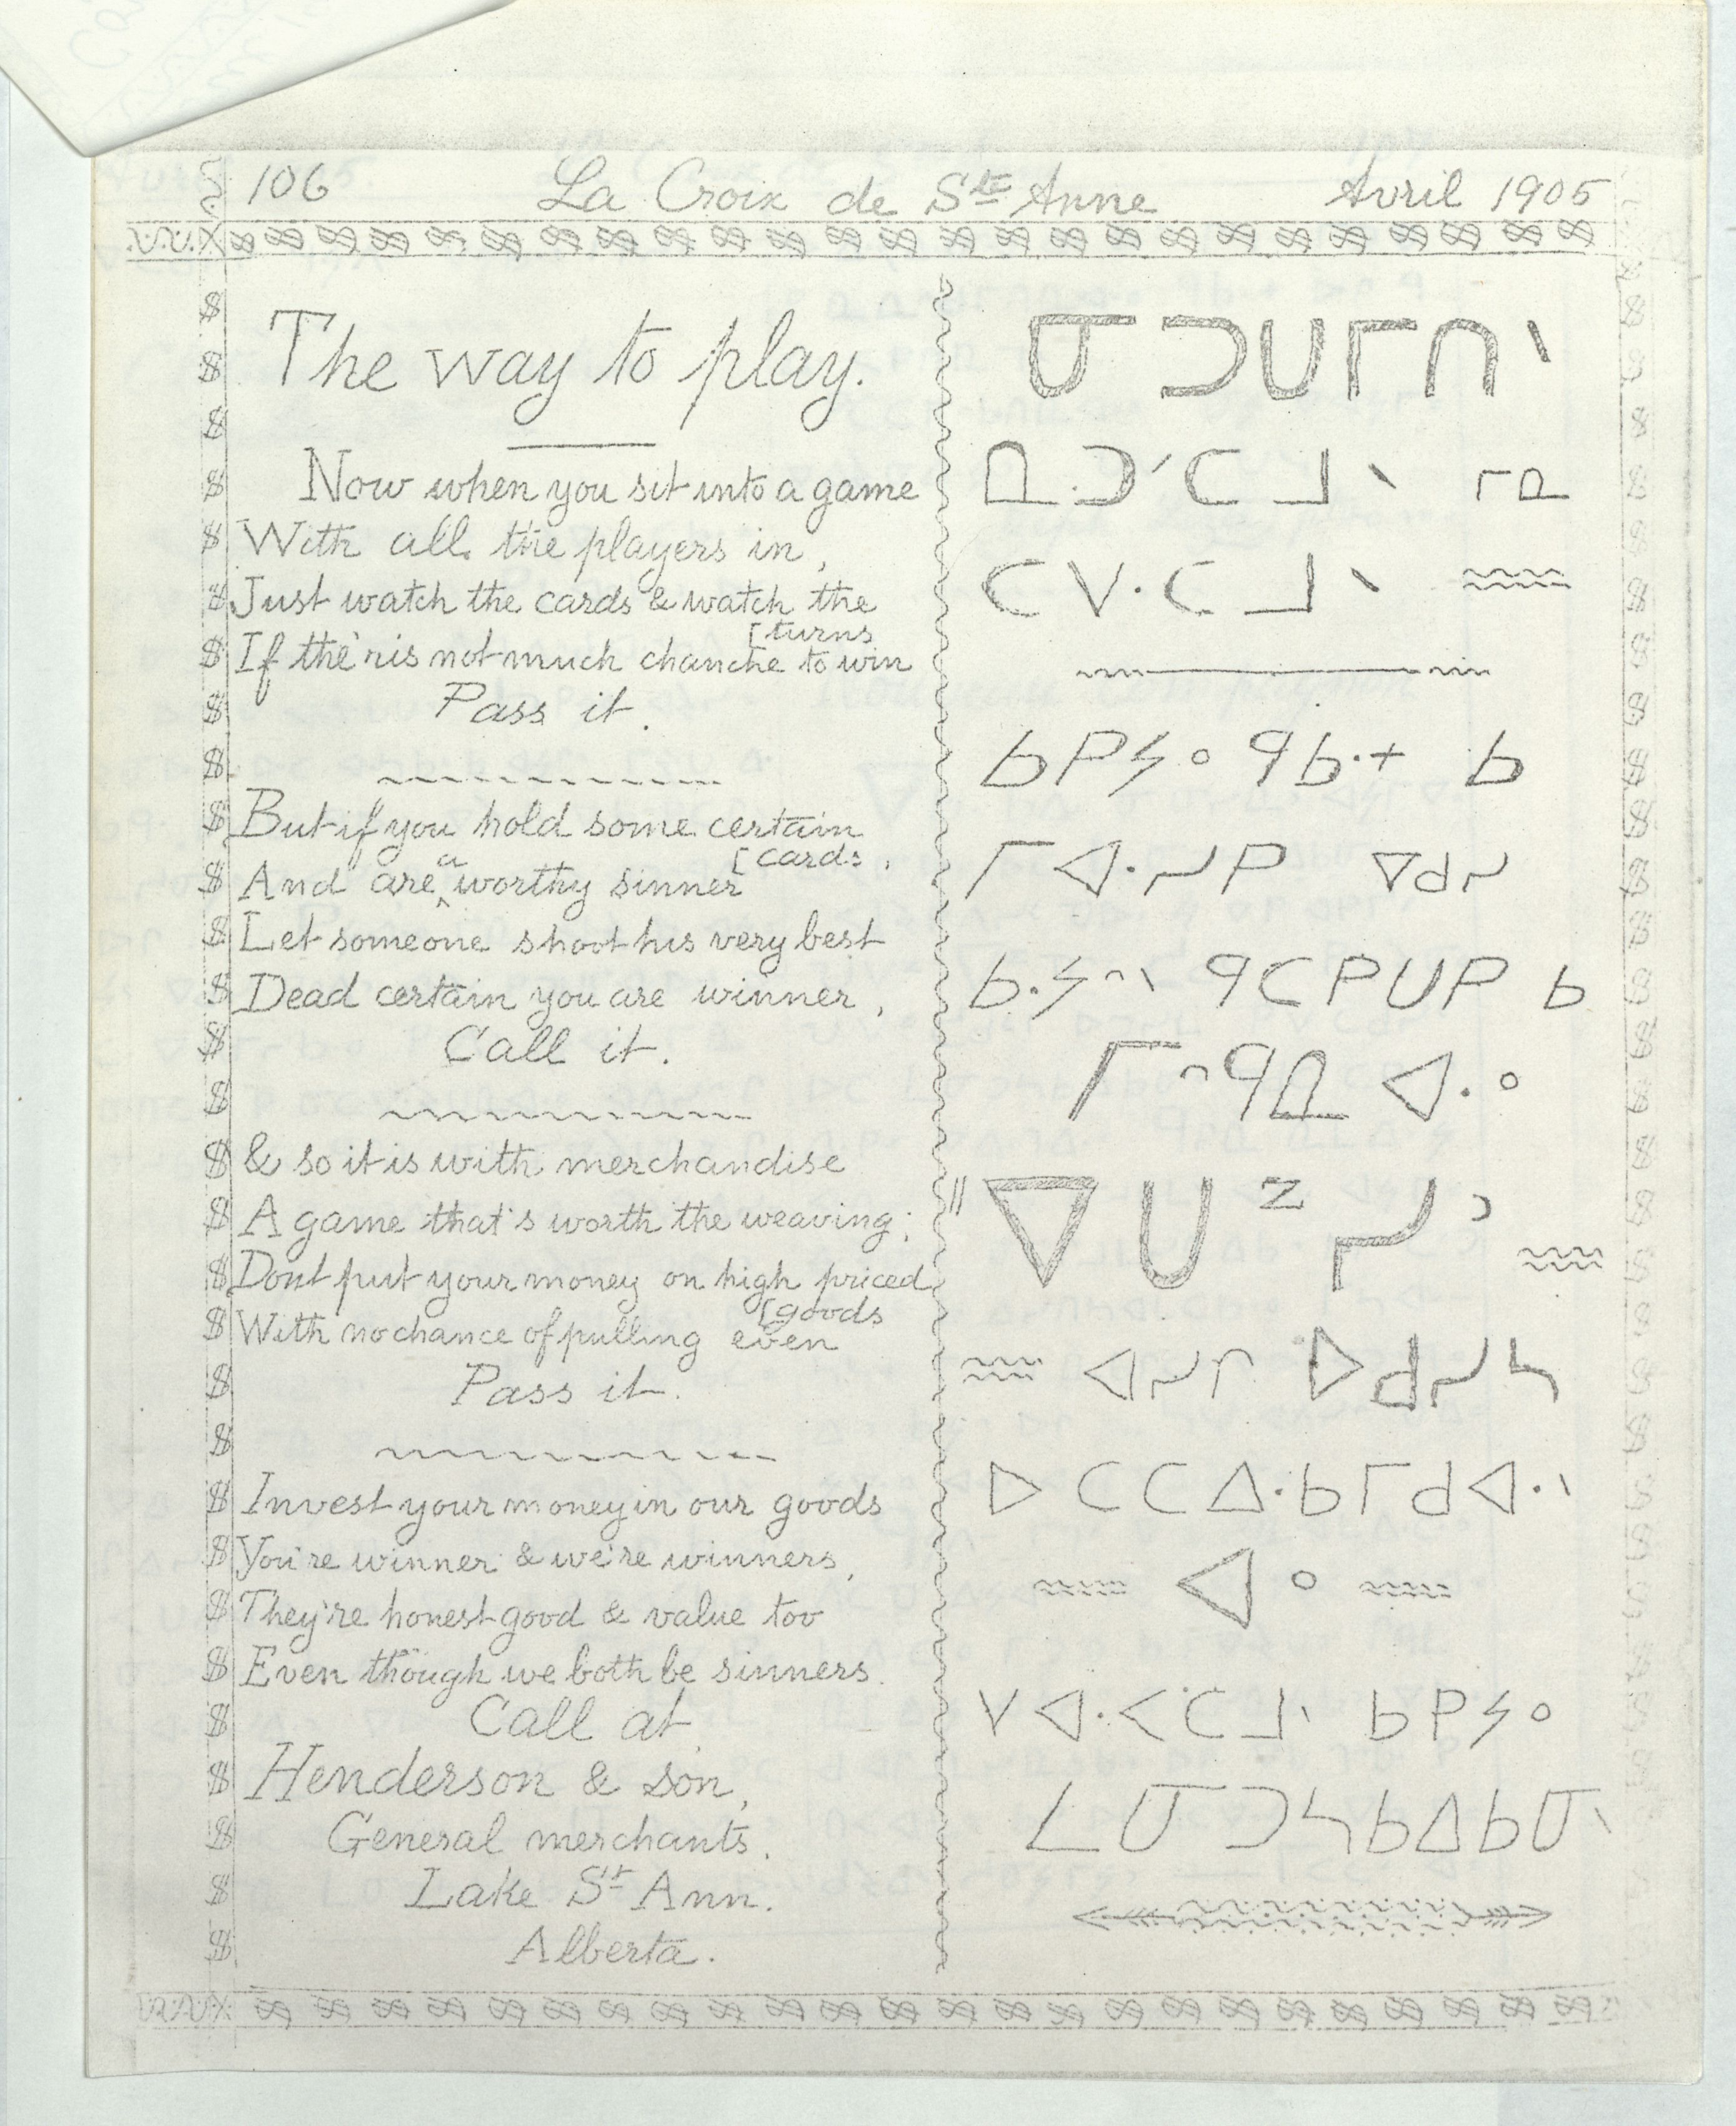 106 La Croix de Ste Anne Avril 1905
The way to play.
Now when you sit into a game
With all the players in,
Just watch the cards & watch the
[turns
If the'ris not much chanche to win
Pass it.
But if you hold some certain
[cards,
And are a worthy sinner
Let someone shoot his very best
Dead certain you are winner,
Call it.
& so it is with merchandise
A game that's worth the weaving;
Dont put your money on high priced
[goods
With no chance of pulling even
Pass it.
Invest your money in our goods
You're winner & we're winners,
They're honest good & value too
Even though we both be sinners.
Call at
Henderson & son,
General merchants.
Lake St Ann.
Alberta.
ᓂ ᑐᑌᒥᑎᐠ
ᓇᐧᑐᐟᑕᒧᐠ ᒥᓇ
ᑕᐯᐧᑕᒧᐠ
ᑲᑭᔭᐤ ᑫᑲᐧᕀ ᑲ
ᒥᐊᐧᓯᑭ ᐁᑯᓯ
ᑲᐧᔭᐢᐠ ᑫᑕᑭᑌᑭ ᑲ
ᒥᐢᑫᓇᐊᐧᐤ
ᐁ ᑌ ᙆ ᓯ ᐣ
ᐊᓯᒋ ᐅᑯᓴ
ᐅᑕᑕᐃᐧᑲᒥᑯᐊᐧᐠ
ᐊᐤ
ᐯᐊᐧᐸᑕᒧᐠ ᑲᑭᔭᐤ
ᒪᓂᑐᓴᑲᐃᑲᓂᐠ